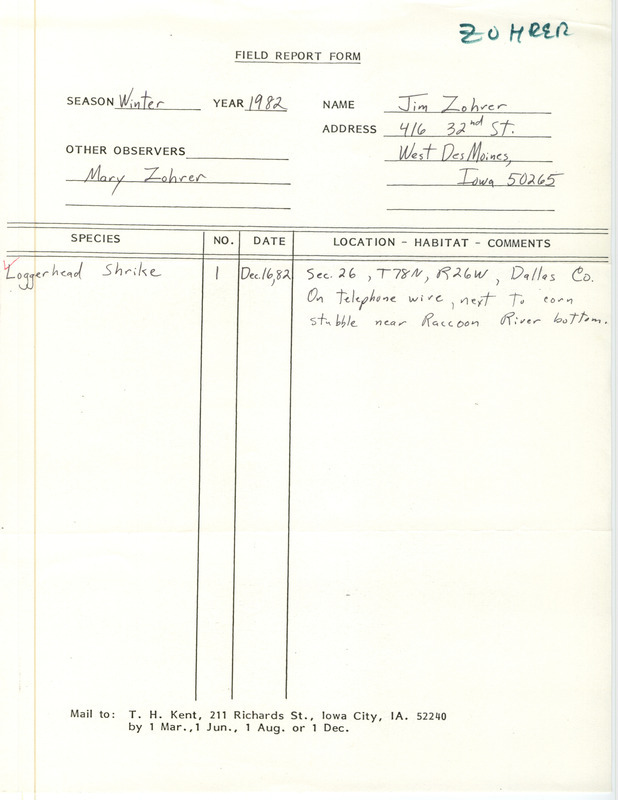 ZOHRER
FIELD REPORT FORM
SEASON Winter YEAR 1982 NAME Jim Zohrer
ADDRESS 416 32nd St.
OTHER OBSERVERS West Des Moines,
Mary Zohrer Iowa 50265
SPECIES NO. DATE LOCATION - HABITAT - COMMENTS
Loggerhead Shrike 1 Dec.16,82 Sec. 26, T78N, R26W, Dallas Co.
On telephone wire, next to corn
stubble near Raccoon River bottom.
Mail to: T. H. Kent, 211 Richards St., Iowa City, IA. 52240
by 1 Mar.,1 Jun., 1 Aug. or 1 Dec.